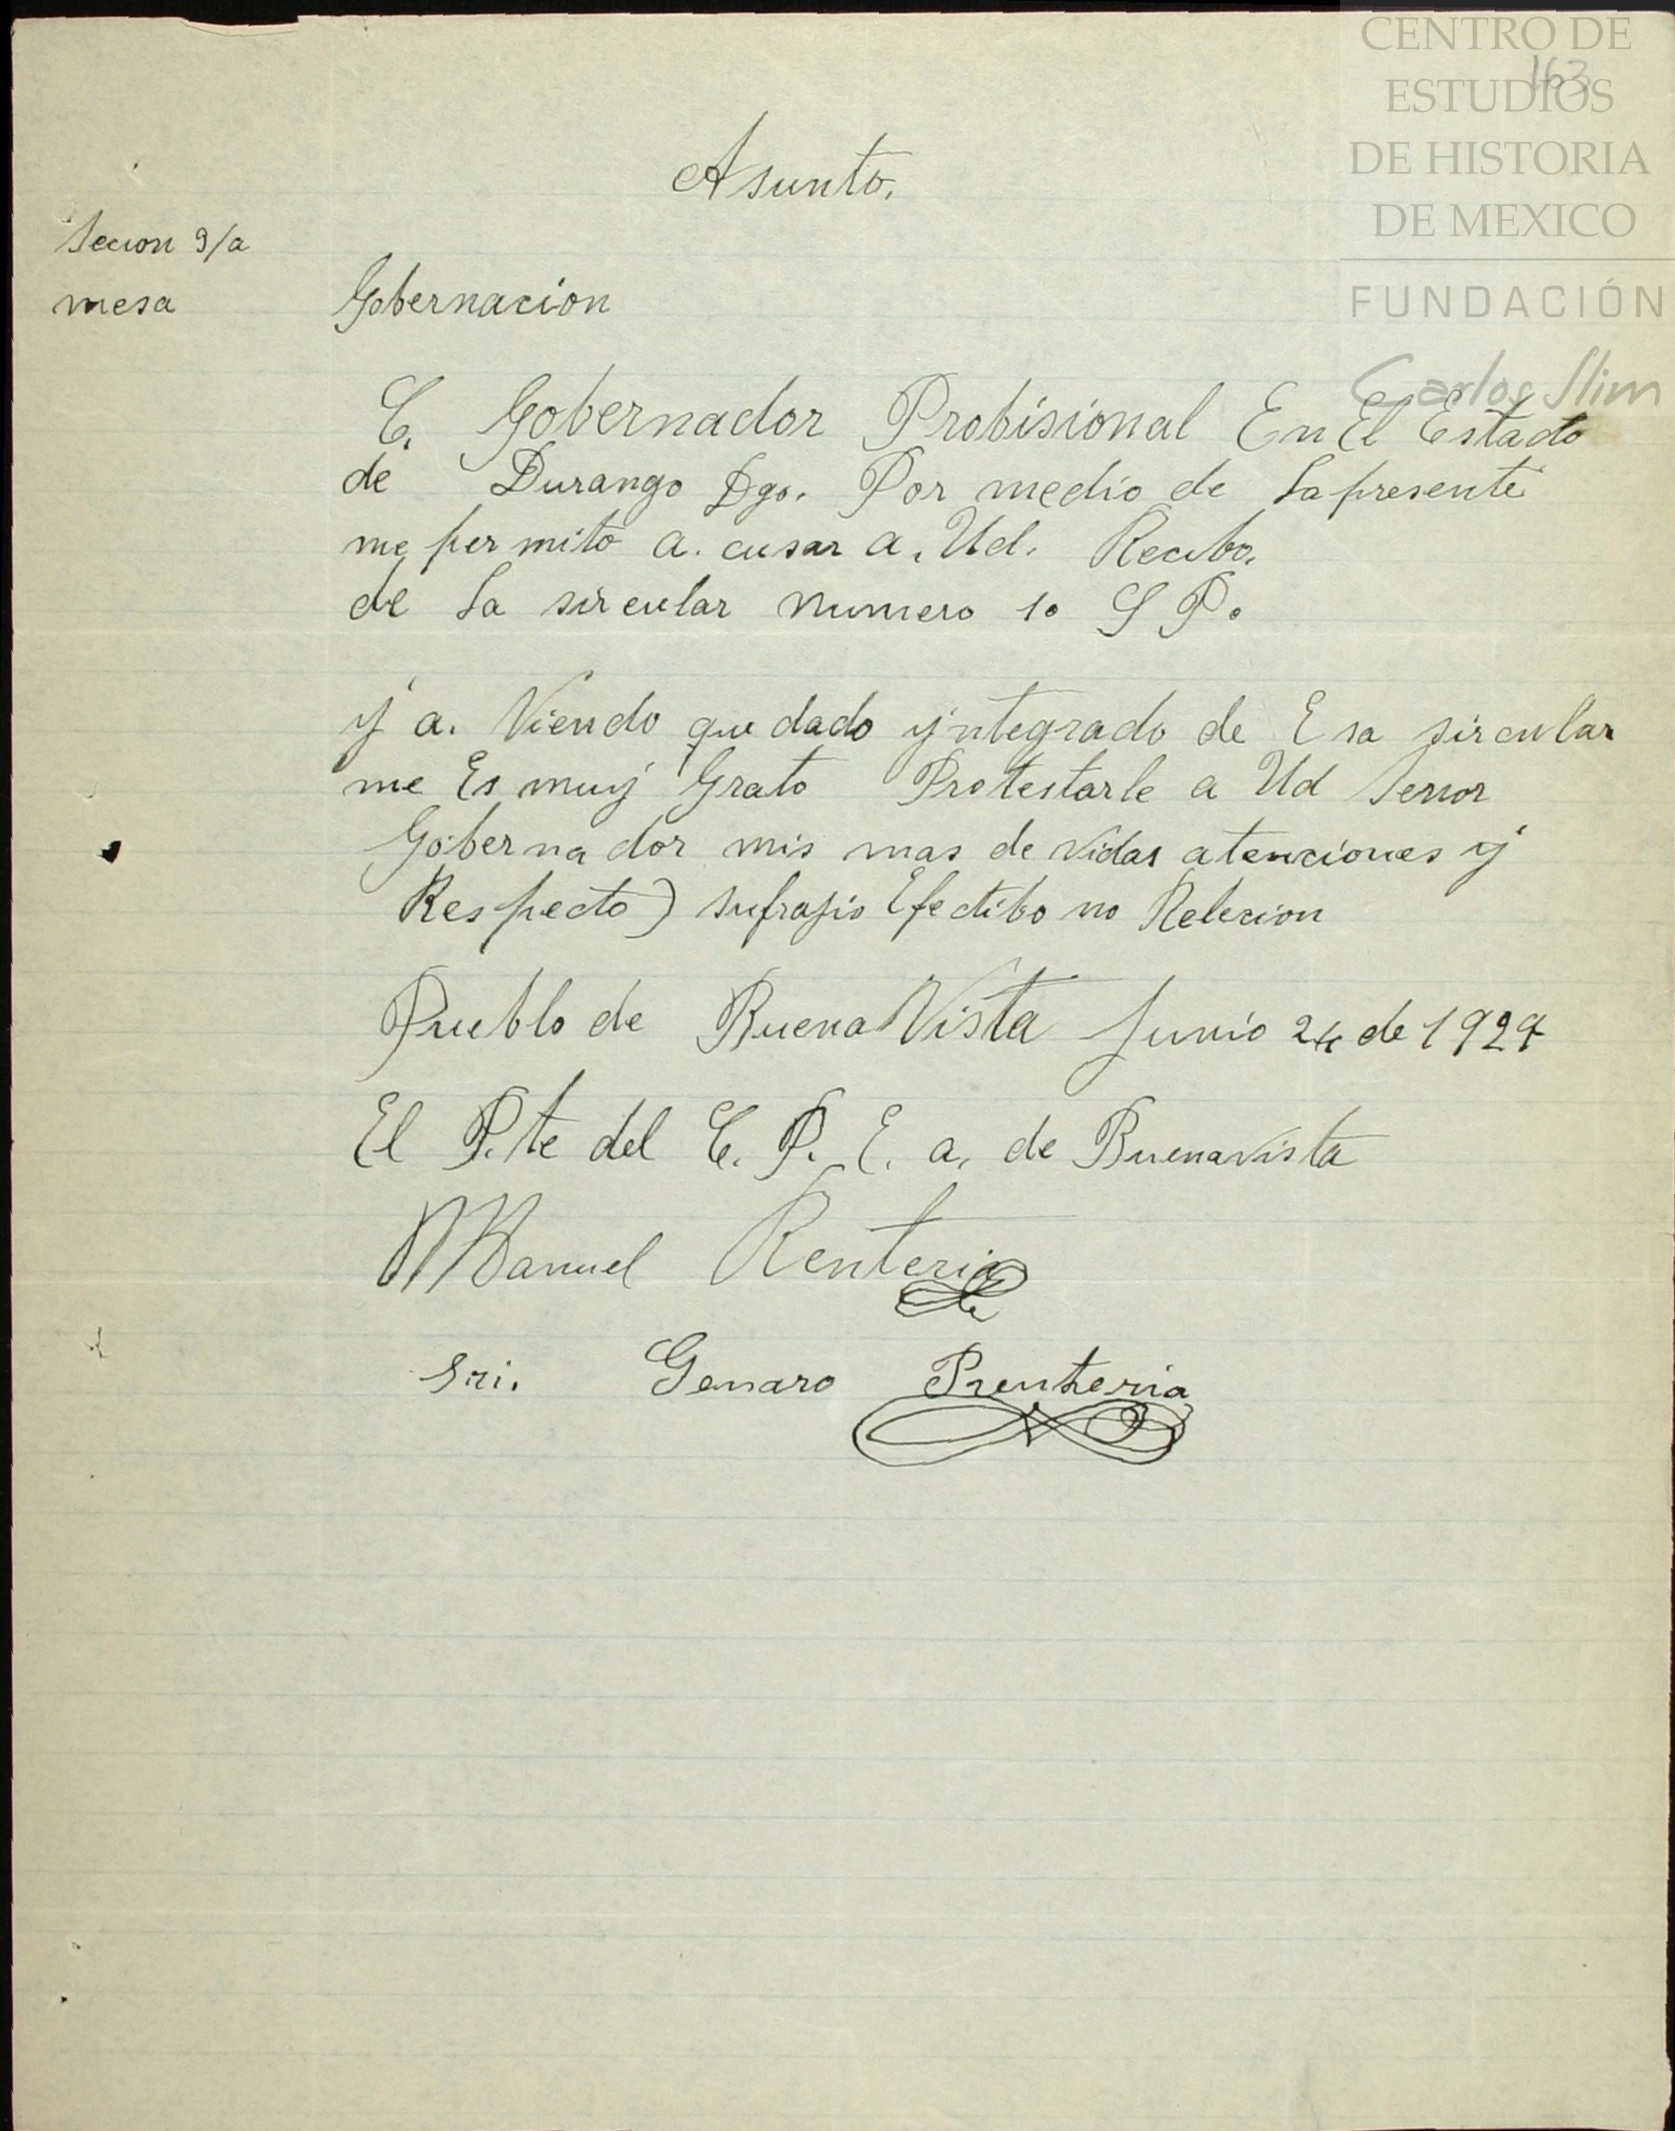 CENTRO DE
ESTUDIOS
DE HISTORIA
DE MEXICO
FUNDACIÓN
Carlos Slim
163
Asunto.
Secion 9/a
mesa Gobernacion
C. Gobernador Probisional En El Estado
de Durango Dgo. Por medio de La presente
me per mito a. cusar a. Ud. Recibo.
de La sircular numero 10 S P.
y a. Viendo que dado yntegrado de Esa sircular
me Es muy Grato Protestarle a Ud Senor
Goberna dor mis mas de vidas atenciones y
Respecto) sufrajio Efectibo no Relecion
Pueblo de Buena Vista Junio 24 de 1929
El P.te del C. P. E. a. de Buenavista
Manuel Renteria
Sri. Genaro Renteria